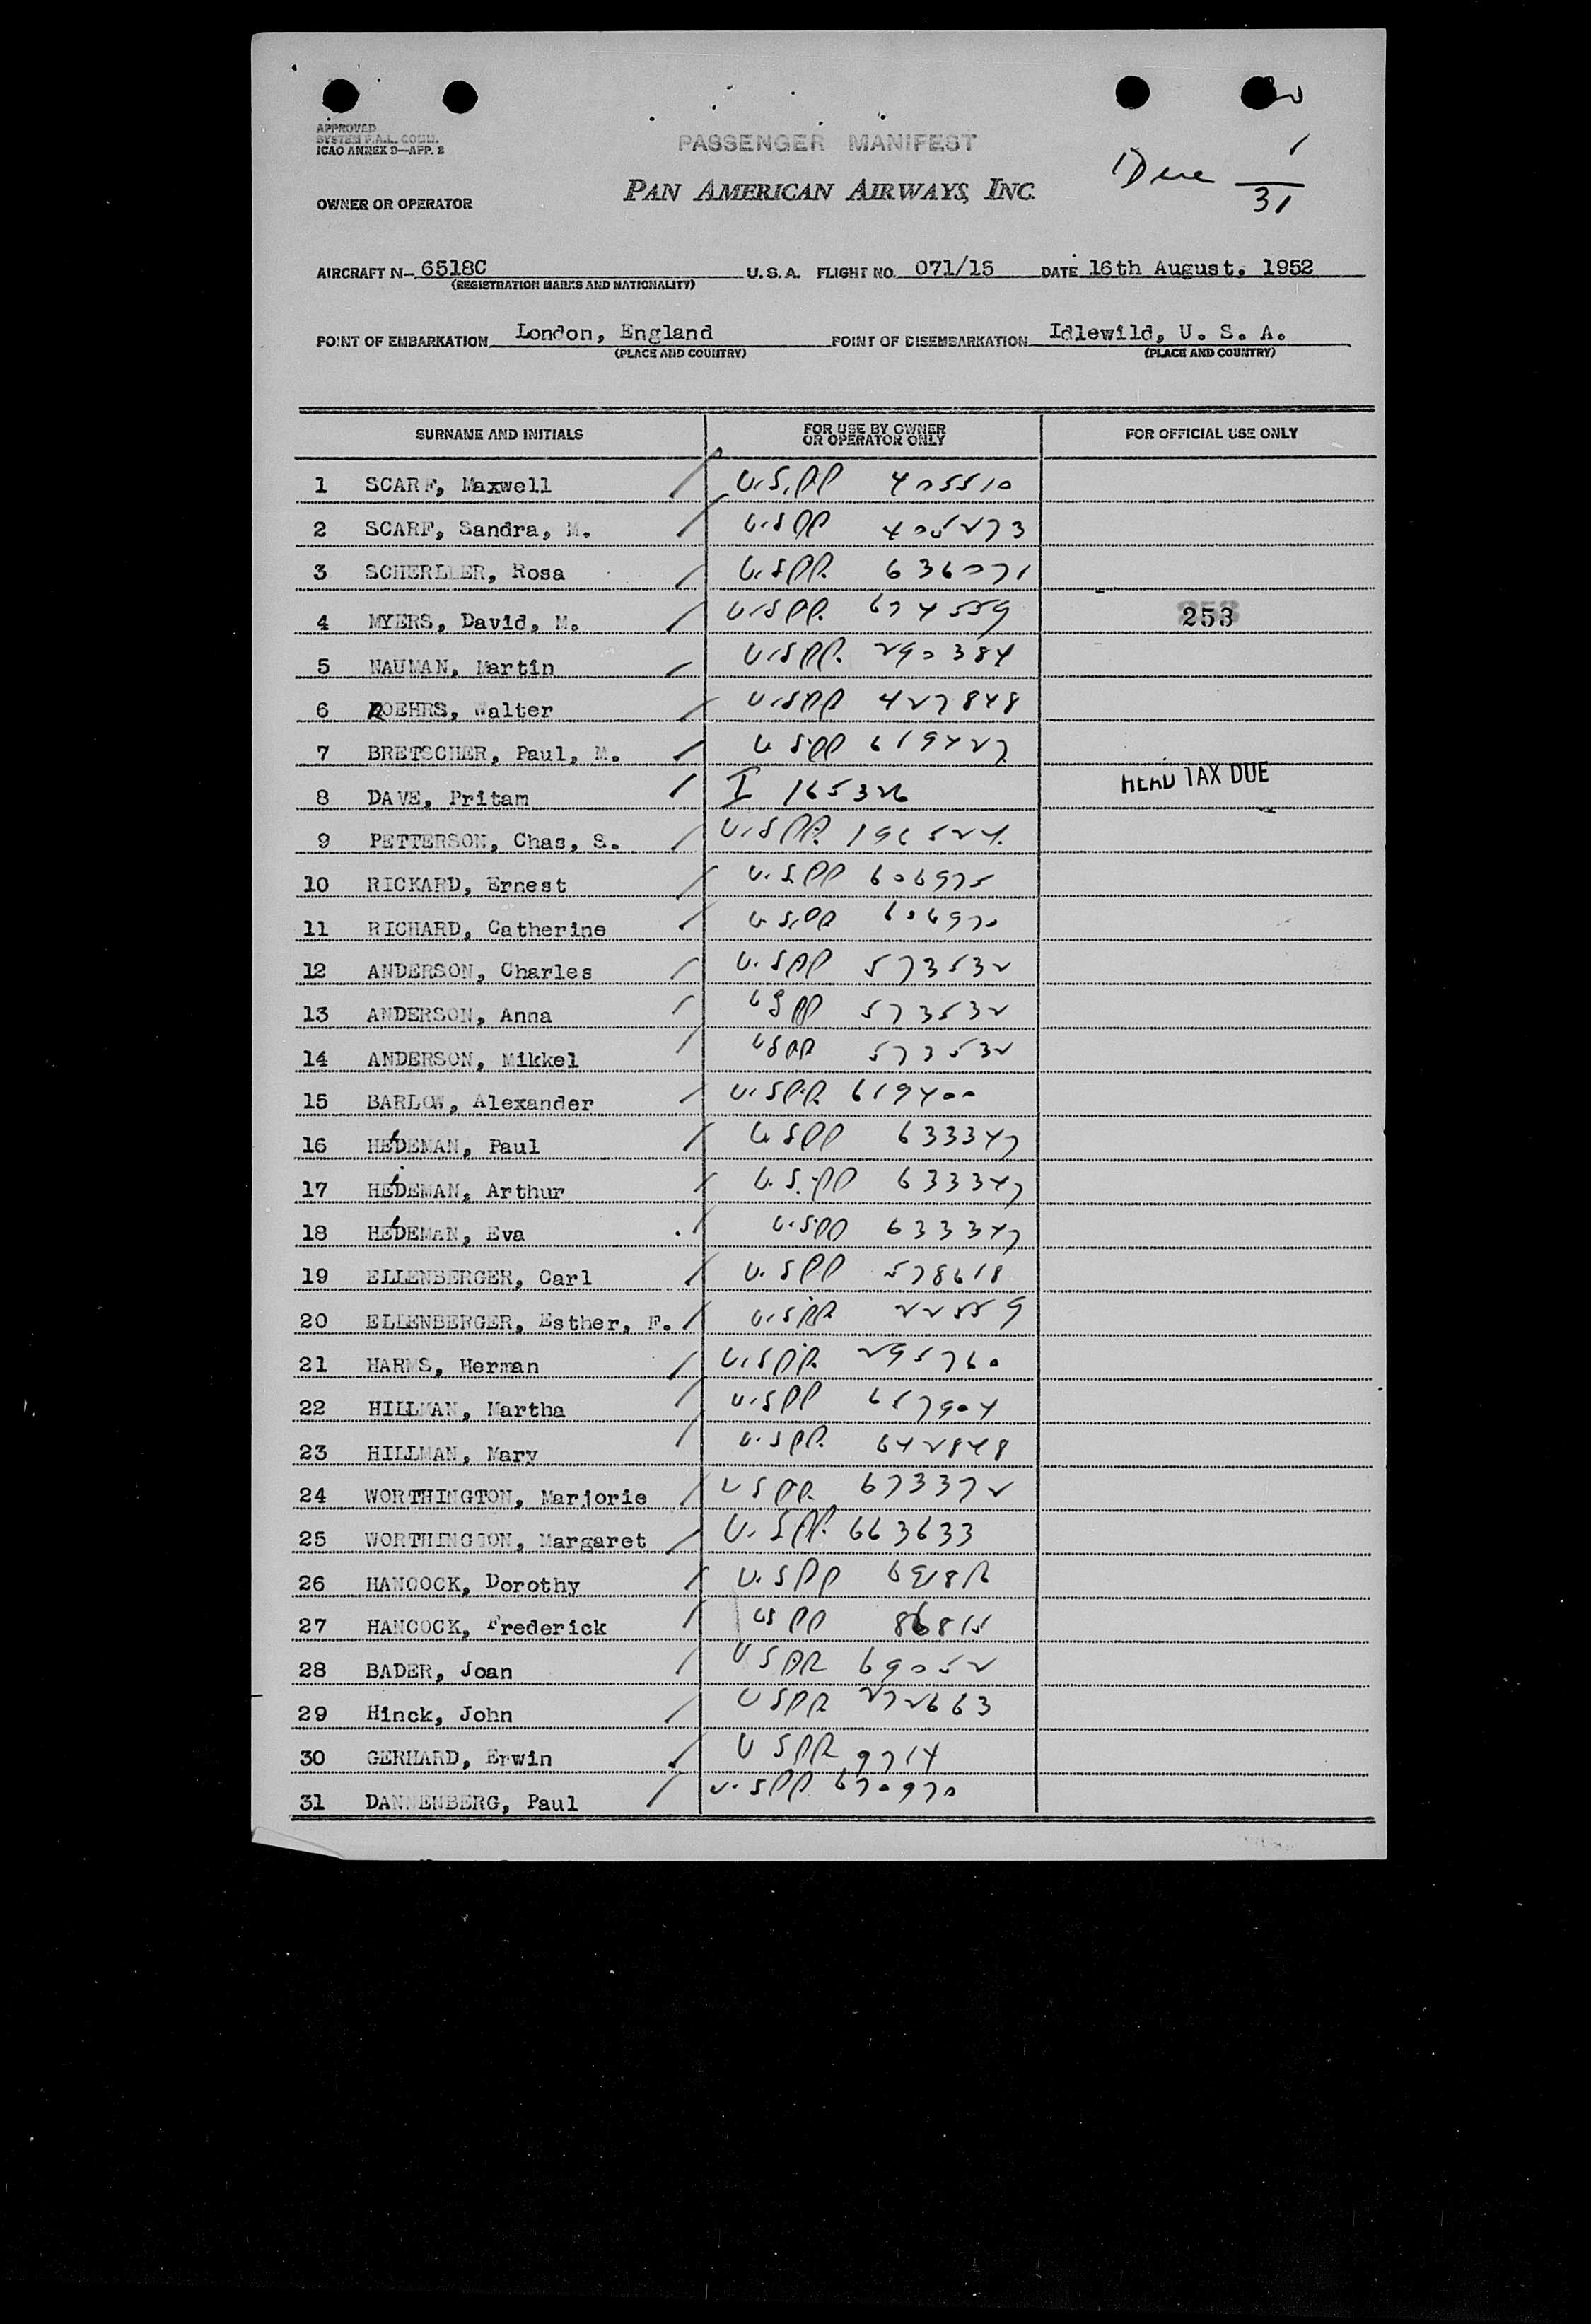 APPROVED
SYSTEM F.A.L. COMM.
ICAO ANNEX 9—APP. 2
PASSENGER MANIFEST
Due 1/31
OWNER OR OPERATOR PAN AMERICAN AIRWAYS, INC.
AIRCRAFT N- 6518C U.S.A. FLIGHT NO. 071/15 DATE 16th August. 1952
(REGISTRATION MARKS AND NATIONALITY)
POINT OF EMBARKATION London, England POINT OF DISEMBARKATION Idlewild, U. S. A.
(PLACE AND COUNTRY) (PLACE AND COUNTRY)
SURNAME AND INITIALS FOR USE BY OWNER OR OPERATOR ONLY FOR OFFICIAL USE ONLY
1 SCARF, Maxwell / U.S.PP 405510
2 SCARF, Sandra, M. / U.SPP 405273
3 SCHERLLER, Rosa / U.SPP. 636071
4 MYERS, David, M. / U.SPP. 674559 253
5 NAUMAN, Martin / U.SPP. 290384
6 ROEHRS, Walter / U.SPP 427848
7 BRETSCHER, Paul, M. / U SPP 619427
8 DAVE, Pritam / I 165326 HEAD TAX DUE
9 PETTERSON, Chas, S. / U.SPP. 196524.
10 RICKARD, Ernest / U.SPP 606975
11 RICHARD, Catherine / U.S.PP 606970
12 ANDERSON, Charles / U.SPP 573532
13 ANDERSON, Anna / USPP 573532
14 ANDERSON, Mikkel / USPP 573532
15 BARLOW, Alexander / U.SPP 619400
16 HEDEMAN, Paul / U SPP 633347
17 HEDEMAN, Arthur / U.S.PP 633347
18 HEDEMAN, Eva / U.SPP 633347
19 ELLENBERGER, Carl / U.SPP 578618
20 ELLENBERGER, Esther, F. / U.SPP 22559
21 HARMS, Herman / U.SPP. 295760
22 HILLMAN, Martha / U.SPP 657904
23 HILLMAN, Mary / U.SPP. 642848
24 WORTHINGTON, Marjorie / USPP 673372
25 WORTHINGTON, Margaret / U.SPP. 663633
26 HANCOCK, Dorothy / U.SPP
27 HANCOCK, Frederick / USPP
28 BADER, Joan / USPP 69052
29 Hinck, John / USPP 272663
30 GERHARD, Erwin / USPP 9714
31 DANNENBERG, Paul / U.SPP 670970